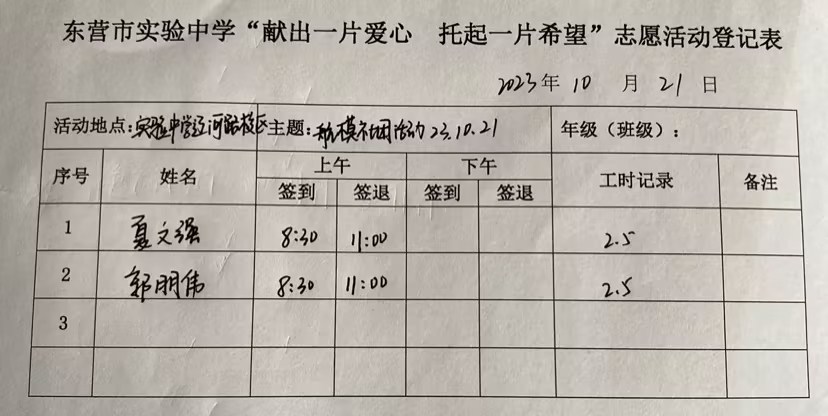 东营市实验中学“献出一片爱心 托起一片希望”志愿活动登记表
2023年 10 月 21 日
活动地点:实验中学辽河路校区 主题:航模社团活动 23.10.21 年级（班级）:
序号 姓名 上午 下午 工时记录 备注
签到 签退 签到 签退
1 夏文强 8:30 11:00 2.5
2 郭朋伟 8:30 11:00 2.5
3